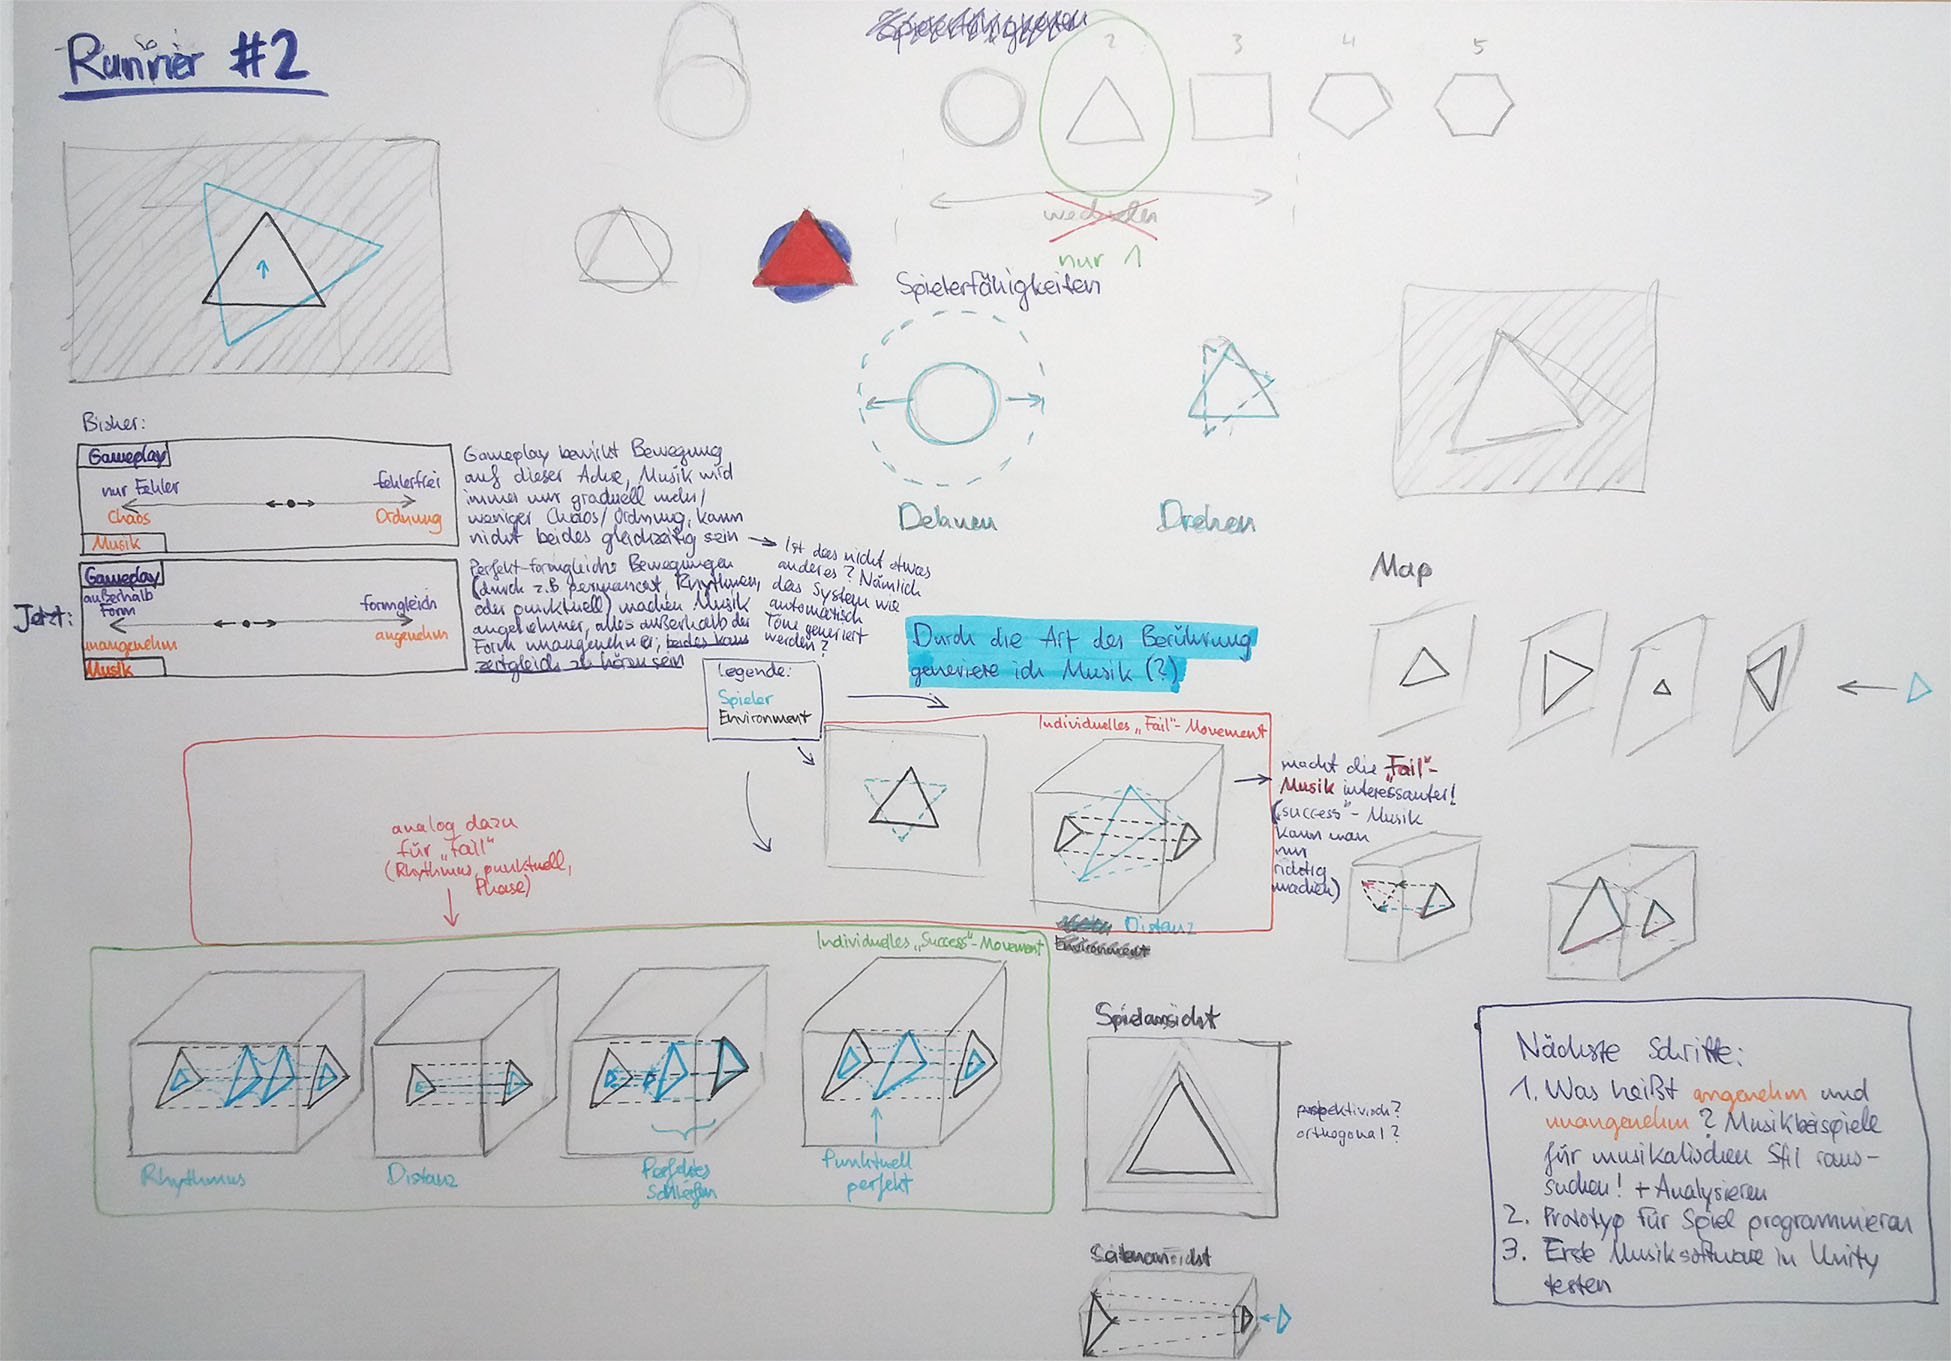 Runner #2
2
3
4
5
wechseln
nur 1
Spielerfähigkeiten
Dehnen
Drehen
Bisher:
Gameplay
nur Fehler
fehlerfrei
Chaos
Ordnung
Musik
Gameplay bewirkt Bewegung
auf dieser Achse, Musik wird
immer nur graduell mehr/
weniger Chaos/Ordnung, kann
nicht beides gleichzeitig sein
Ist das nicht etwas
anderes? Nämlich
das System wie
automatisch
Töne generiert
werden?
Jetzt:
Gameplay
außerhalb
Form
formgleich
unangenehm
angenehm
Musik
Perfekt-formgleiche Bewegungen
(durch z.B. permanent, Rhythmen,
oder punktuell) machen Musik
angenehmer, alles außerhalb der
Form unangenehmer, beides kann
zeitgleich zu hören sein
Durch die Art der Berührung
generiere ich Musik (?)
Map
Legende:
Spieler
Environment
Individuelles „Fail"-Movement
macht die „Fail"-
Musik interessanter!
(„success"-Musik
kann man
nur
richtig
machen)
analog dazu
für „Fail"
(Rhythmus, punktuell,
Phase)
Distanz
Environment
Individuelles „Success"-Movement
Rhythmus
Distanz
Perfektes
Schleifen
Punktuell
perfekt
Spielansicht
perspektivisch?
orthogonal?
Seitenansicht
Nächste Schritte:
1. Was heißt angenehm und
unangenehm? Musikbeispiele
für musikalischen Stil raus-
suchen! + Analysieren
2. Prototyp für Spiel programmieren
3. Erste Musiksoftware in Unity
testen